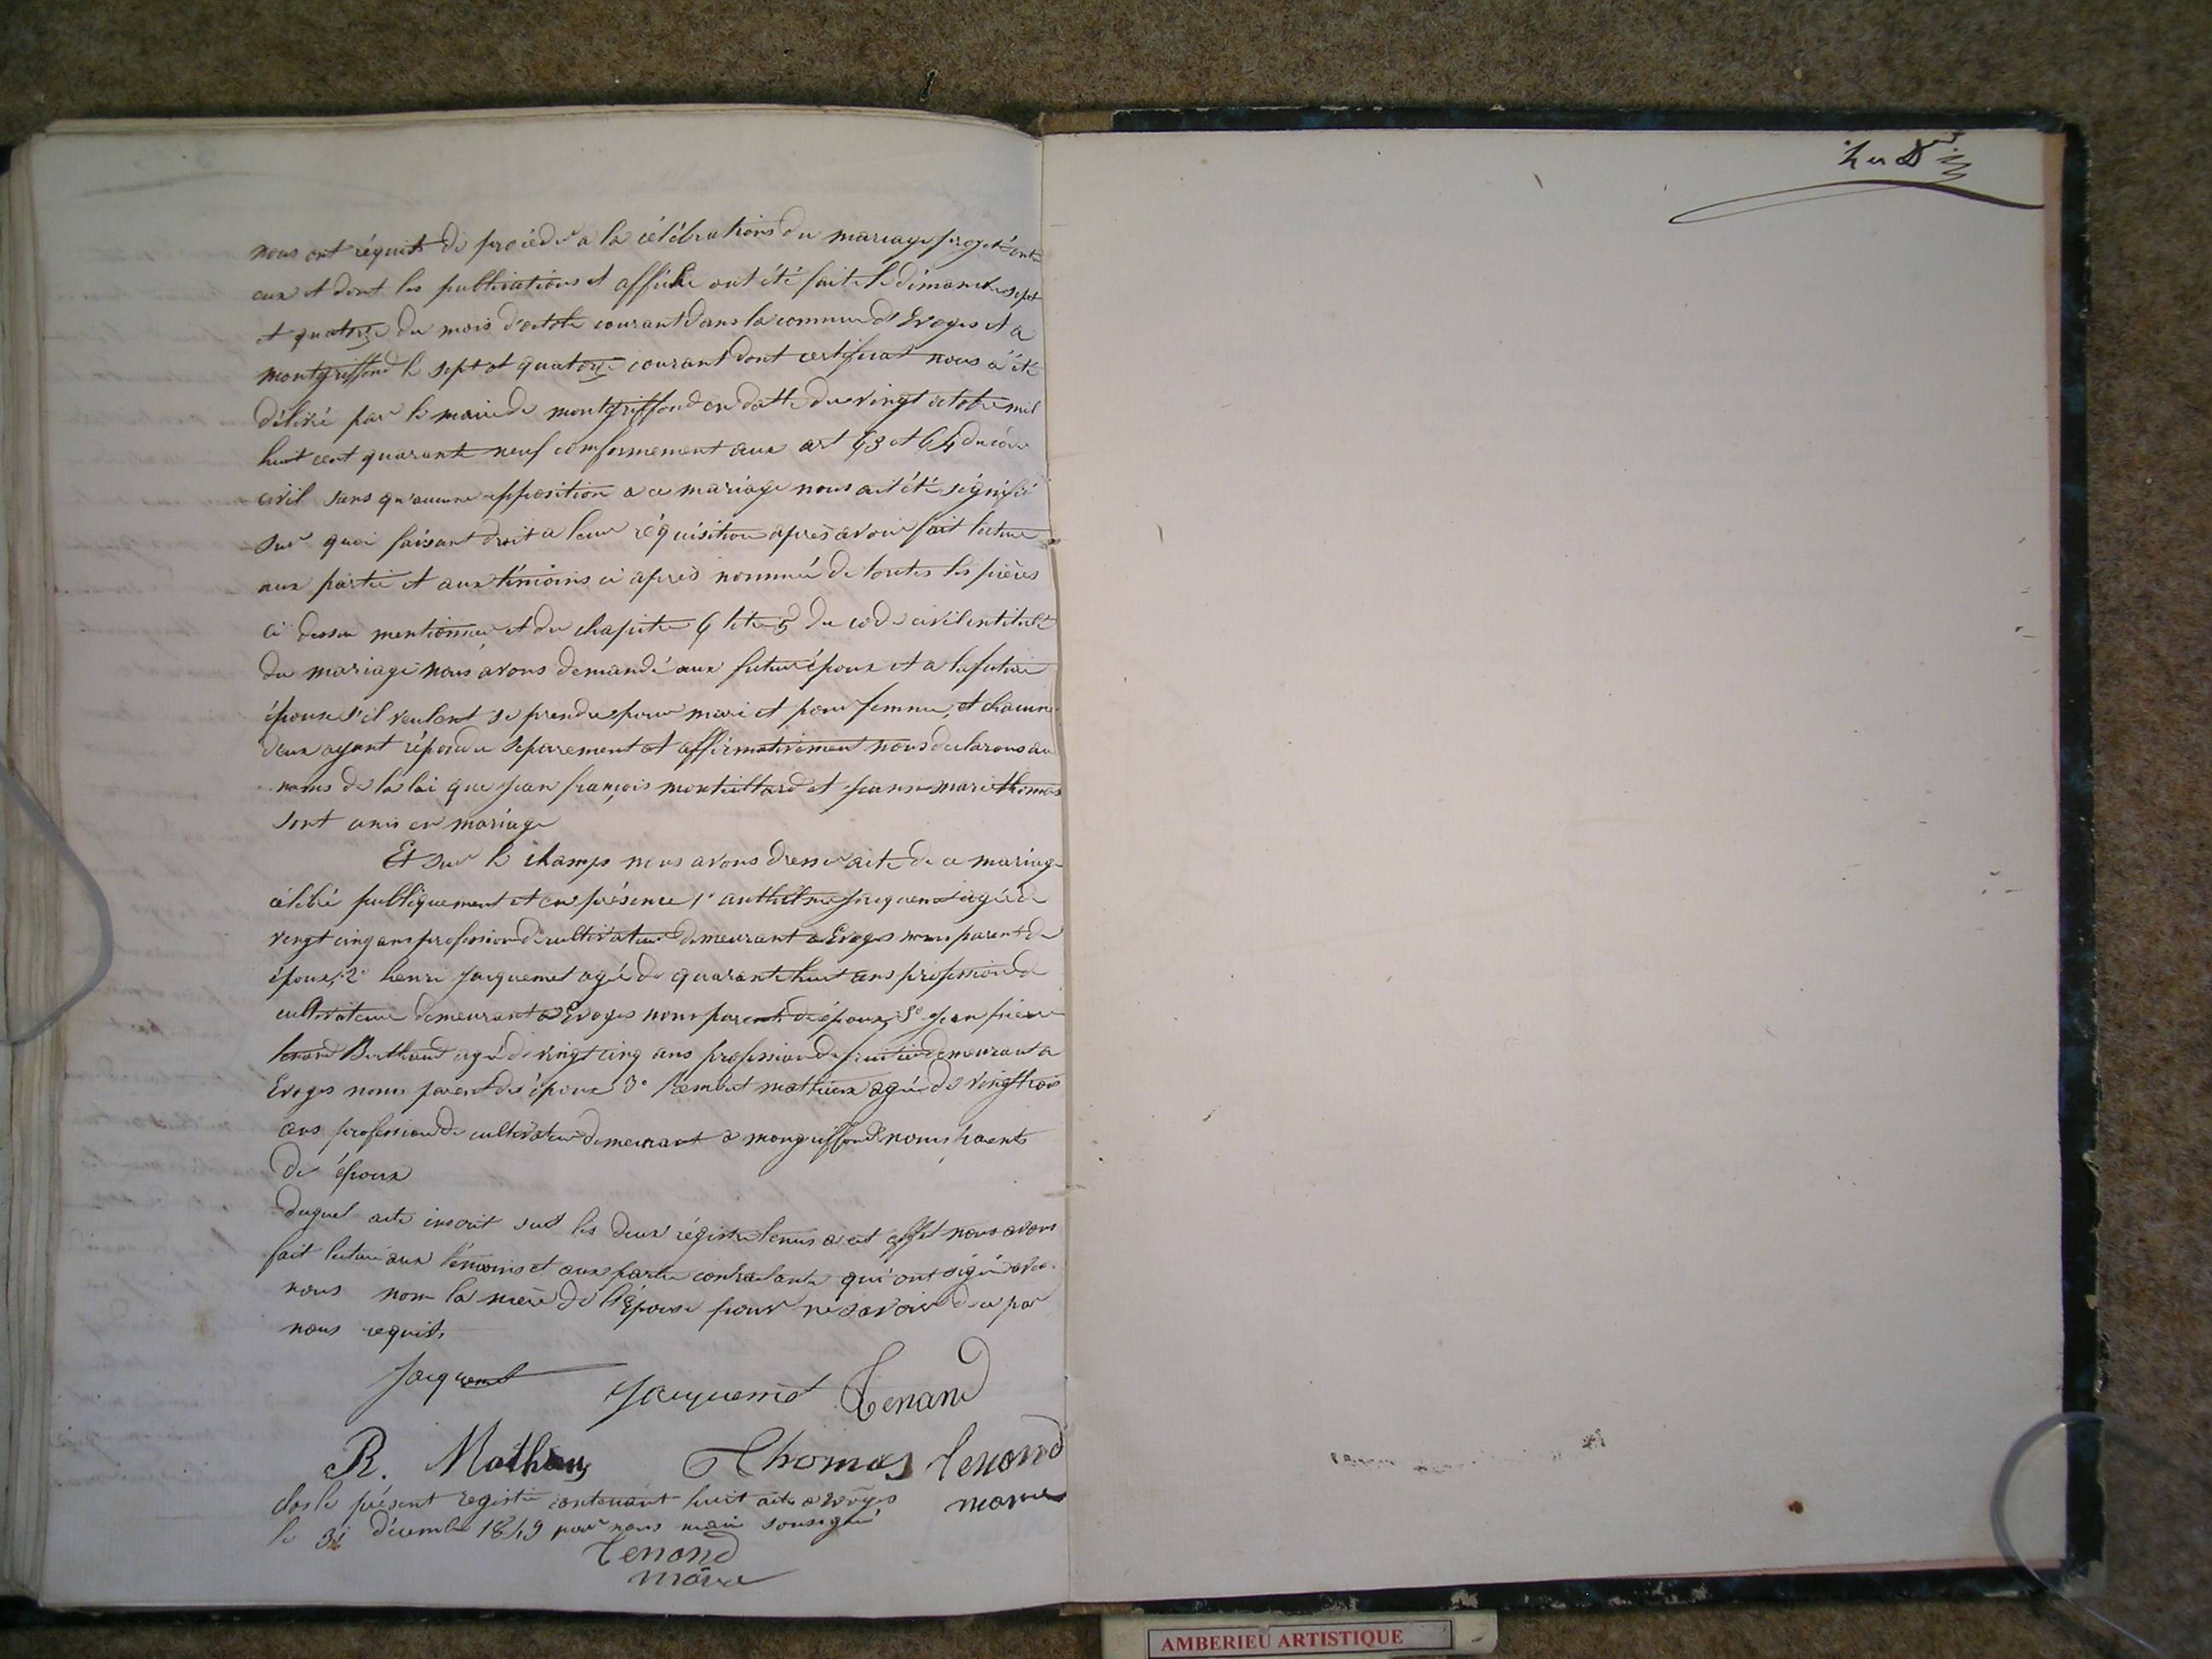 nous ont réquit de procéder a la célébrations du mariage projeté entre
eux et dont les publications et affiche ont été faite le dimanche sept
et quatorze du mois d'octobre courant dans la commune d'Evoges et a
montgriffond le sept et quatorze courant dont certificat nous a été
délivré par le maire de montgriffond en datte du vingt octobre mil
huit cent quarante neuf comformement aux art 63 et 64 du code
civil sans qu'aucune opposition a ce mariage nous ait été signifié
sur quoi faisant droit a leur réquisition après avoir fait lecture
aux partie et aux témoins ci après nommé de toutes les pièces
ci dessu mentionnée et du chapitre 6 titre 5 du code civil intitulé
du mariage nous avons demandé aux futur époux et a la future
épouse s'il veulent se prendre pour mari et pour femme, et chacune
deux ayant répondu séparement et affirmativement nous declarons au
noms de la loi que jean françois montillard et jeanne marie thomas
sont unis en mariage
Et sur le champs nous avons dresser acte de ce mariage
célébré publiquement et en présence 1° anthelme jacquemet agé de
vingt cinq ans profession de cultivateur demeurant a Evoges nom parent de
époux, 2° henri jacquemet agé de quarante huit ans profession de
cultivateur demeurant a Evoges nom parent de époux, 3° jean pierre
tenand Berthand agé de vingt cinq ans profession de demeurant a
Evoges nom parent de époux 3° Rembert mathieux agée de vingt trois
ans profession de cultivateur demeurant a mongriffond nom parents
de époux
duquel acte inscrit sur les deux régistre tenus a cet effet nous avons
fait lecture aux témoins et aux partie contractante qui ont signé avec
nous nom la mère de l'épouse pour ne savoir de ce par
nous requit.
Jacquemet Jacquemet Tenand
R. Mathieux Thomas Tenand
maire
clos le présent registre contenant huit acte a Evoges
le 31 décembre 1849 par nous maire sousigné
Tenand
maire
AMBERIEU ARTISTIQUE